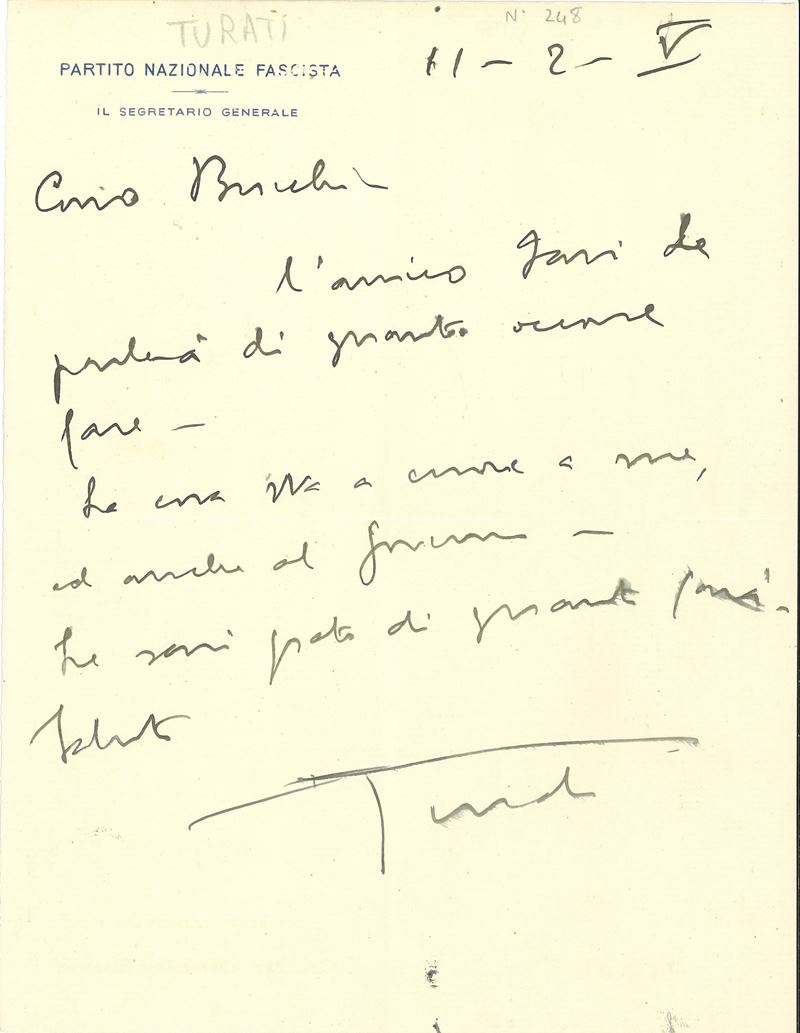 TURATI
N. 248
PARTITO NAZIONALE FASCISTA
IL SEGRETARIO GENERALE
11 - 2 - V
Caro
l'amico Le
parlerà di quanto occorre
fare -
La cosa sta a cuore a me,
ed anche al Governo -
Le sarò grato di quanto farà -
Saluti
Turati